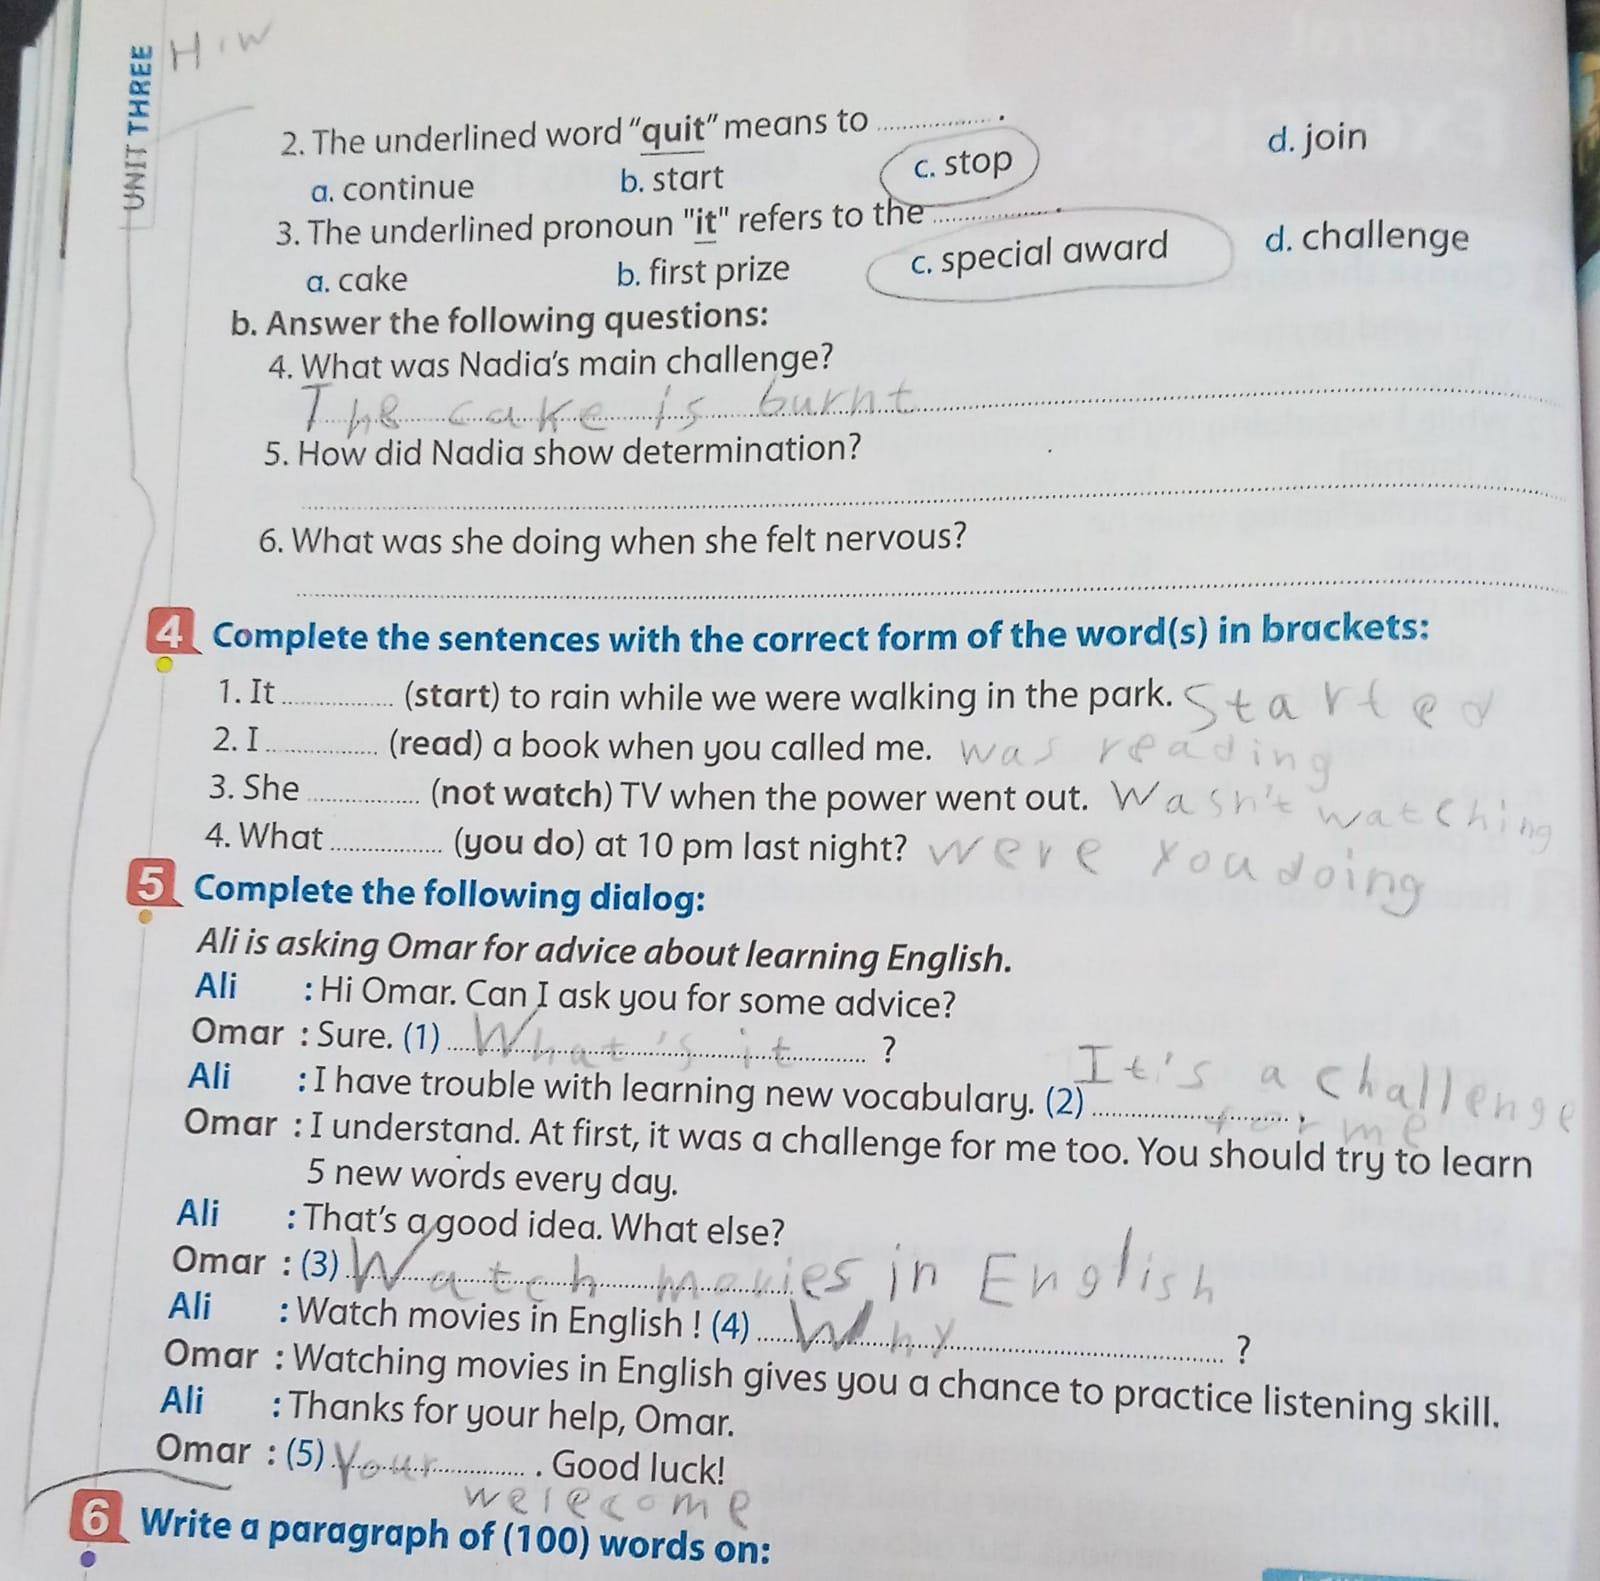 UNIT THREE
H i w
2. The underlined word “quit” means to .................. .
a. continue b. start c. stop d. join
3. The underlined pronoun "it" refers to the .................. .
a. cake b. first prize c. special award d. challenge
b. Answer the following questions:
4. What was Nadia’s main challenge?
The cake is burnt
5. How did Nadia show determination?
6. What was she doing when she felt nervous?
4 Complete the sentences with the correct form of the word(s) in brackets:
1. It .................. (start) to rain while we were walking in the park. Started
2. I .................. (read) a book when you called me. was reading
3. She .................. (not watch) TV when the power went out. Wasn't watching
4. What .................. (you do) at 10 pm last night? were you doing
5 Complete the following dialog:
Ali is asking Omar for advice about learning English.
Ali : Hi Omar. Can I ask you for some advice?
Omar : Sure. (1) What's it ?
Ali : I have trouble with learning new vocabulary. (2) It's a challenge for me .
Omar : I understand. At first, it was a challenge for me too. You should try to learn
5 new words every day.
Ali : That’s a good idea. What else?
Omar : (3) Watch movies in English
Ali : Watch movies in English ! (4) Why ?
Omar : Watching movies in English gives you a chance to practice listening skill.
Ali : Thanks for your help, Omar.
Omar : (5) Your welecome . Good luck!
6 Write a paragraph of (100) words on: